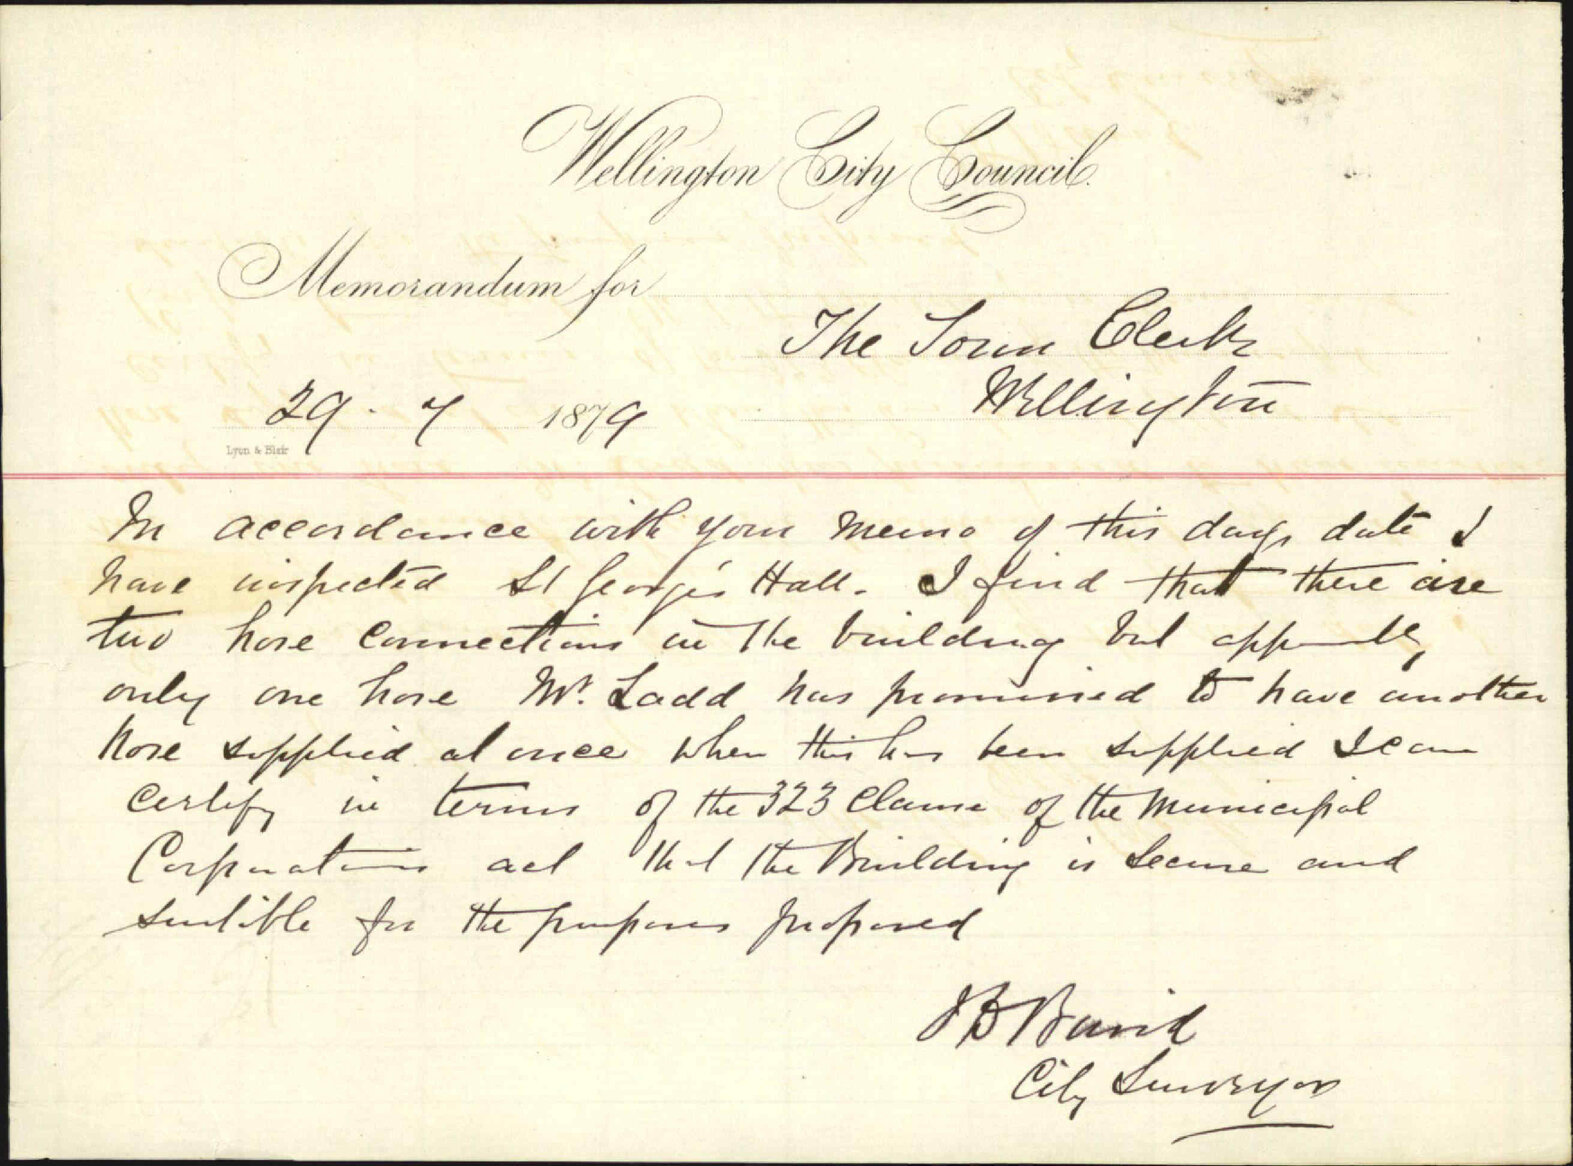 Wellington City Council.
Memorandum for
The Town Clerk
Wellington
29 . 7 1879
Lyon & Blair
In accordance with your memo of this days date I
have inspected St George's Hall. I find that there are
two hose connections in the building but apparently
only one hose Mr. Ladd has promised to have another
hose supplied at once when this has been supplied I can
certify in terms of the 323 Clause of the Municipal
Corporations act that the Building is secure and
suitible for the purposes proposed
J B Baird
City Surveyor